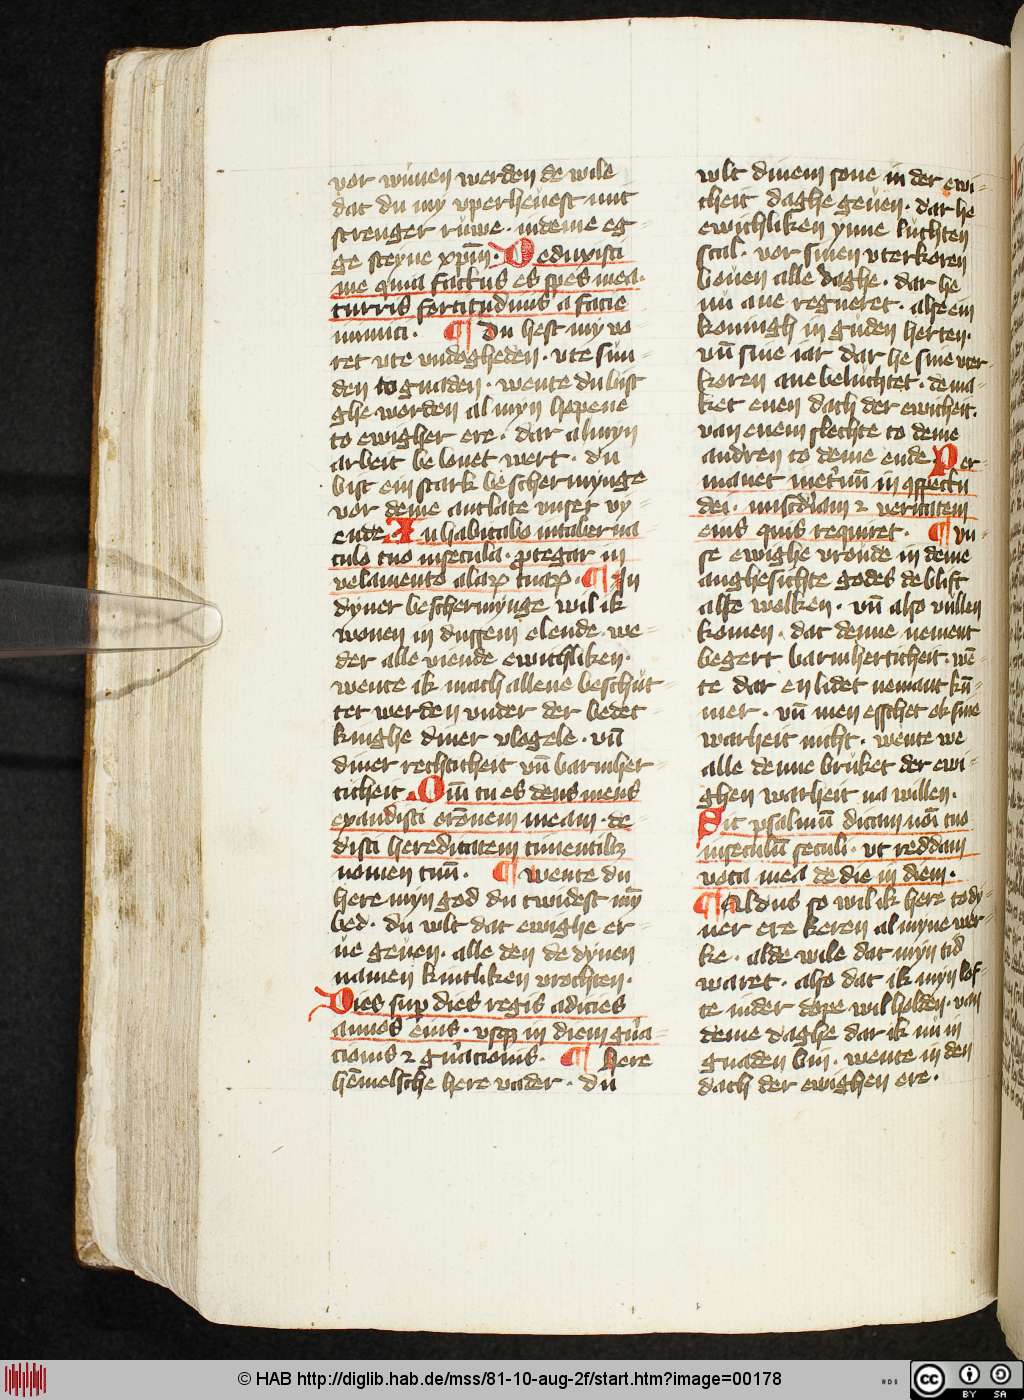 vor wūnen werden de wile
dat du my vperheuest mit
strenger růwe · indeme eg=
ge steyne xp̄m̄ · Deduxisti
me quia factus es spes mea ·
turris fortitudinis a facie
inimici · ¶ Du hest my vo=
ret vte vndogheden · vte sun=
den to gnaden · wente du bist
ghe worden al myn hopene
to ewigher ere · dar al myn
arbeit be lonet wert · du
bist ein stark be schermynge
vor deme antlate vnser vy=
ende Inhabitabo intaberna=
culo tuo insecula · protegar in
velamento alaꝝ tuaꝝ · ¶ In
dyner beschermynge wil ik
wonen in dussem elende · we=
der alle viende ewichliken ·
wente ik mach allene beschut=
tet werden vnder der bedec=
kinghe diner vlogele · vn̄
diner rechticheit vn̄ barmher=
ticheit · Qm̄ tu es deus meus
exaudisti or̄onem meam · de=
disti hereditatem timentibꝫ
nomen tuū · ¶ Wente du
here myn god du twidest my̅
bed · du wlt dat ewighe er=
ue geuen · alle den de dynen
namen kintliken vrochten ·
Dies sup̱ dies regis adicies
annos eius · vsqꝫ in diem gn̄a=
tionis ⁊ gn̄acionis · ¶ Here
hēmelsche here vader · du
wlt dinem sone in der ewi=
cheit daghe geuen · dar he
ewichliken ynne luchten
scal · vor sinen vterkoren
bouen alle daghe · dar he
nu ane regneret · alse ein
koningh in guden herten ·
vn̄ sine iar dar he sine vter=
koren ane beluchtet · de ma=
ket enen dach der ewicheit ·
van enem slechte to deme
andren to deme ende Per=
manet inet̓nū in ꝯspectu
dei · mis̄diam ⁊ veritatem
eius quis requiret · ¶ Vn=
se ewighe vronde in deme
anghesichte godes de blift
alse wolken · vn̄ also vullen
komen · dat denne nement
begert barmherticheit · wē=
te dar en lidet nemant kū=
mer · vn̄ men esschet ok sine
warheit nicht · wente we
alle denne bruket der ewi=
ghen warheit na willen ·
Sic psalmū dicam noi̅ tuo
inseculū seculi · vt reddam
vota mea de die in diem ·
¶ Aldus so wil ik here to dy=
ner ere keren al myne wer=
ke · alde wile dat myn tid
waret · also dat ik myn lof=
te in der dope wil holden · van
deme daghe dar ik nu in
gnaden bin · wente in den
dach der ewighen ere ·
© HAB http://diglib.hab.de/mss/81-10-aug-2f/start.htm?image=00178